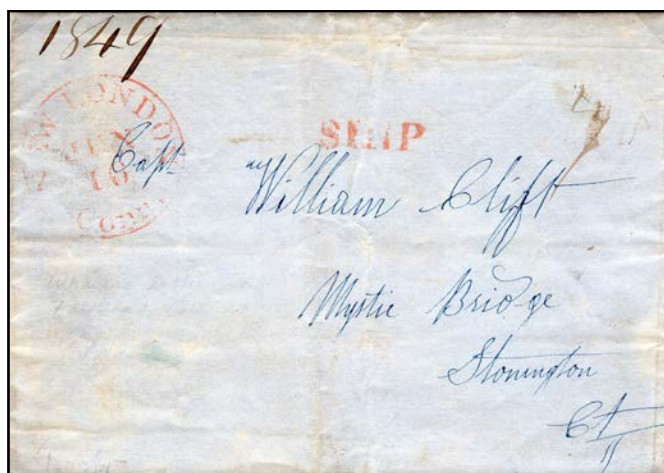 1849
NEW LONDON
JUN
16
CONN.
SHIP
7
Capt. William Clift
Mystic Bridge
Stonington
Ct